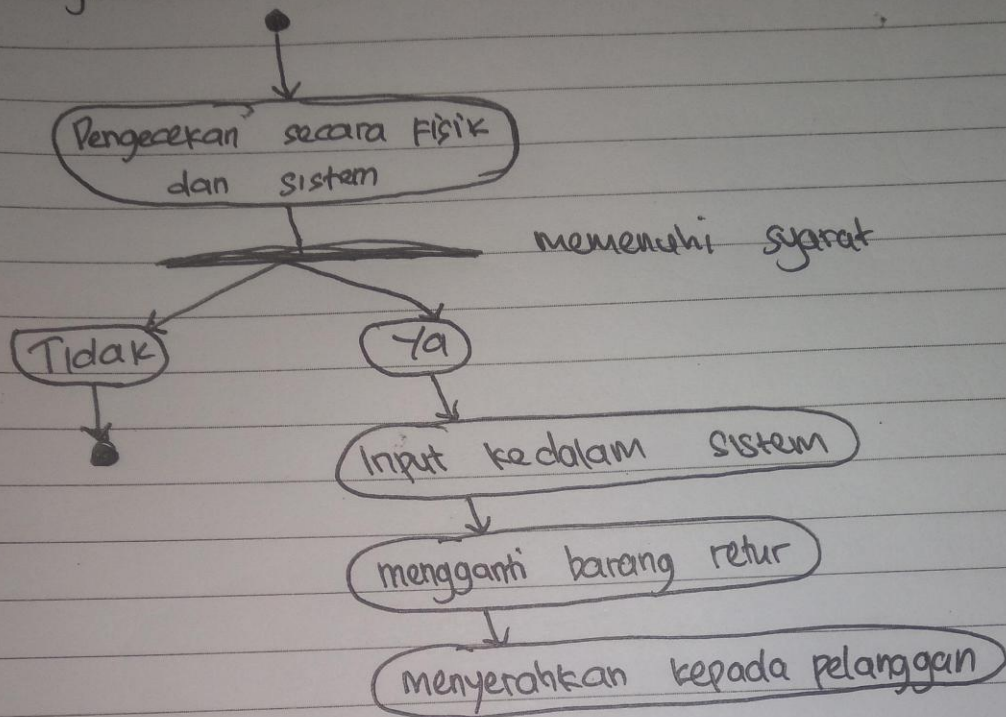 Pengecekan secara Fisik
dan sistem
memenuhi syarat
Tidak
Ya
Input kedalam sistem
mengganti barang retur
menyerahkan kepada pelanggan